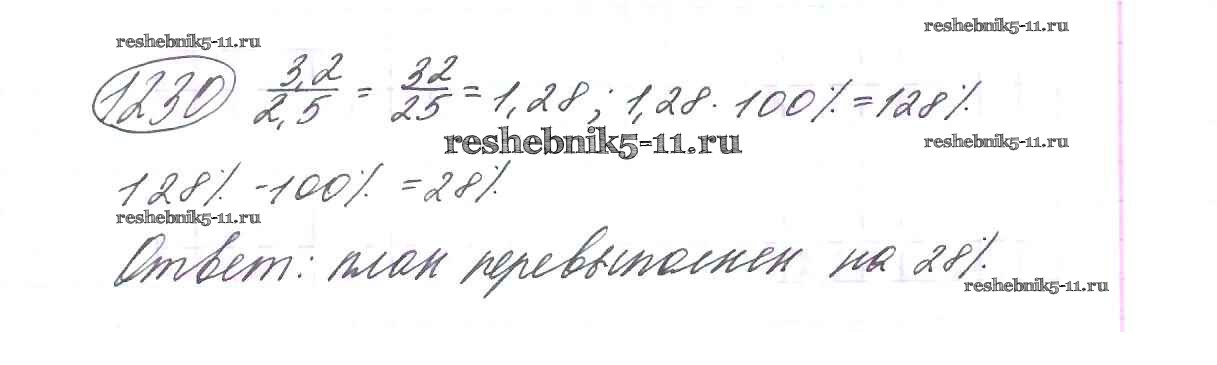 reshebnik5-11.ru
reshebnik5-11.ru
1230 3,2/2,5 = 32/25 = 1,28; 1,28 · 100% = 128%.
reshebnik5-11.ru
reshebnik5-11.ru
128% - 100% = 28%
reshebnik5-11.ru
Ответ: план перевыполнен на 28%.
reshebnik5-11.ru